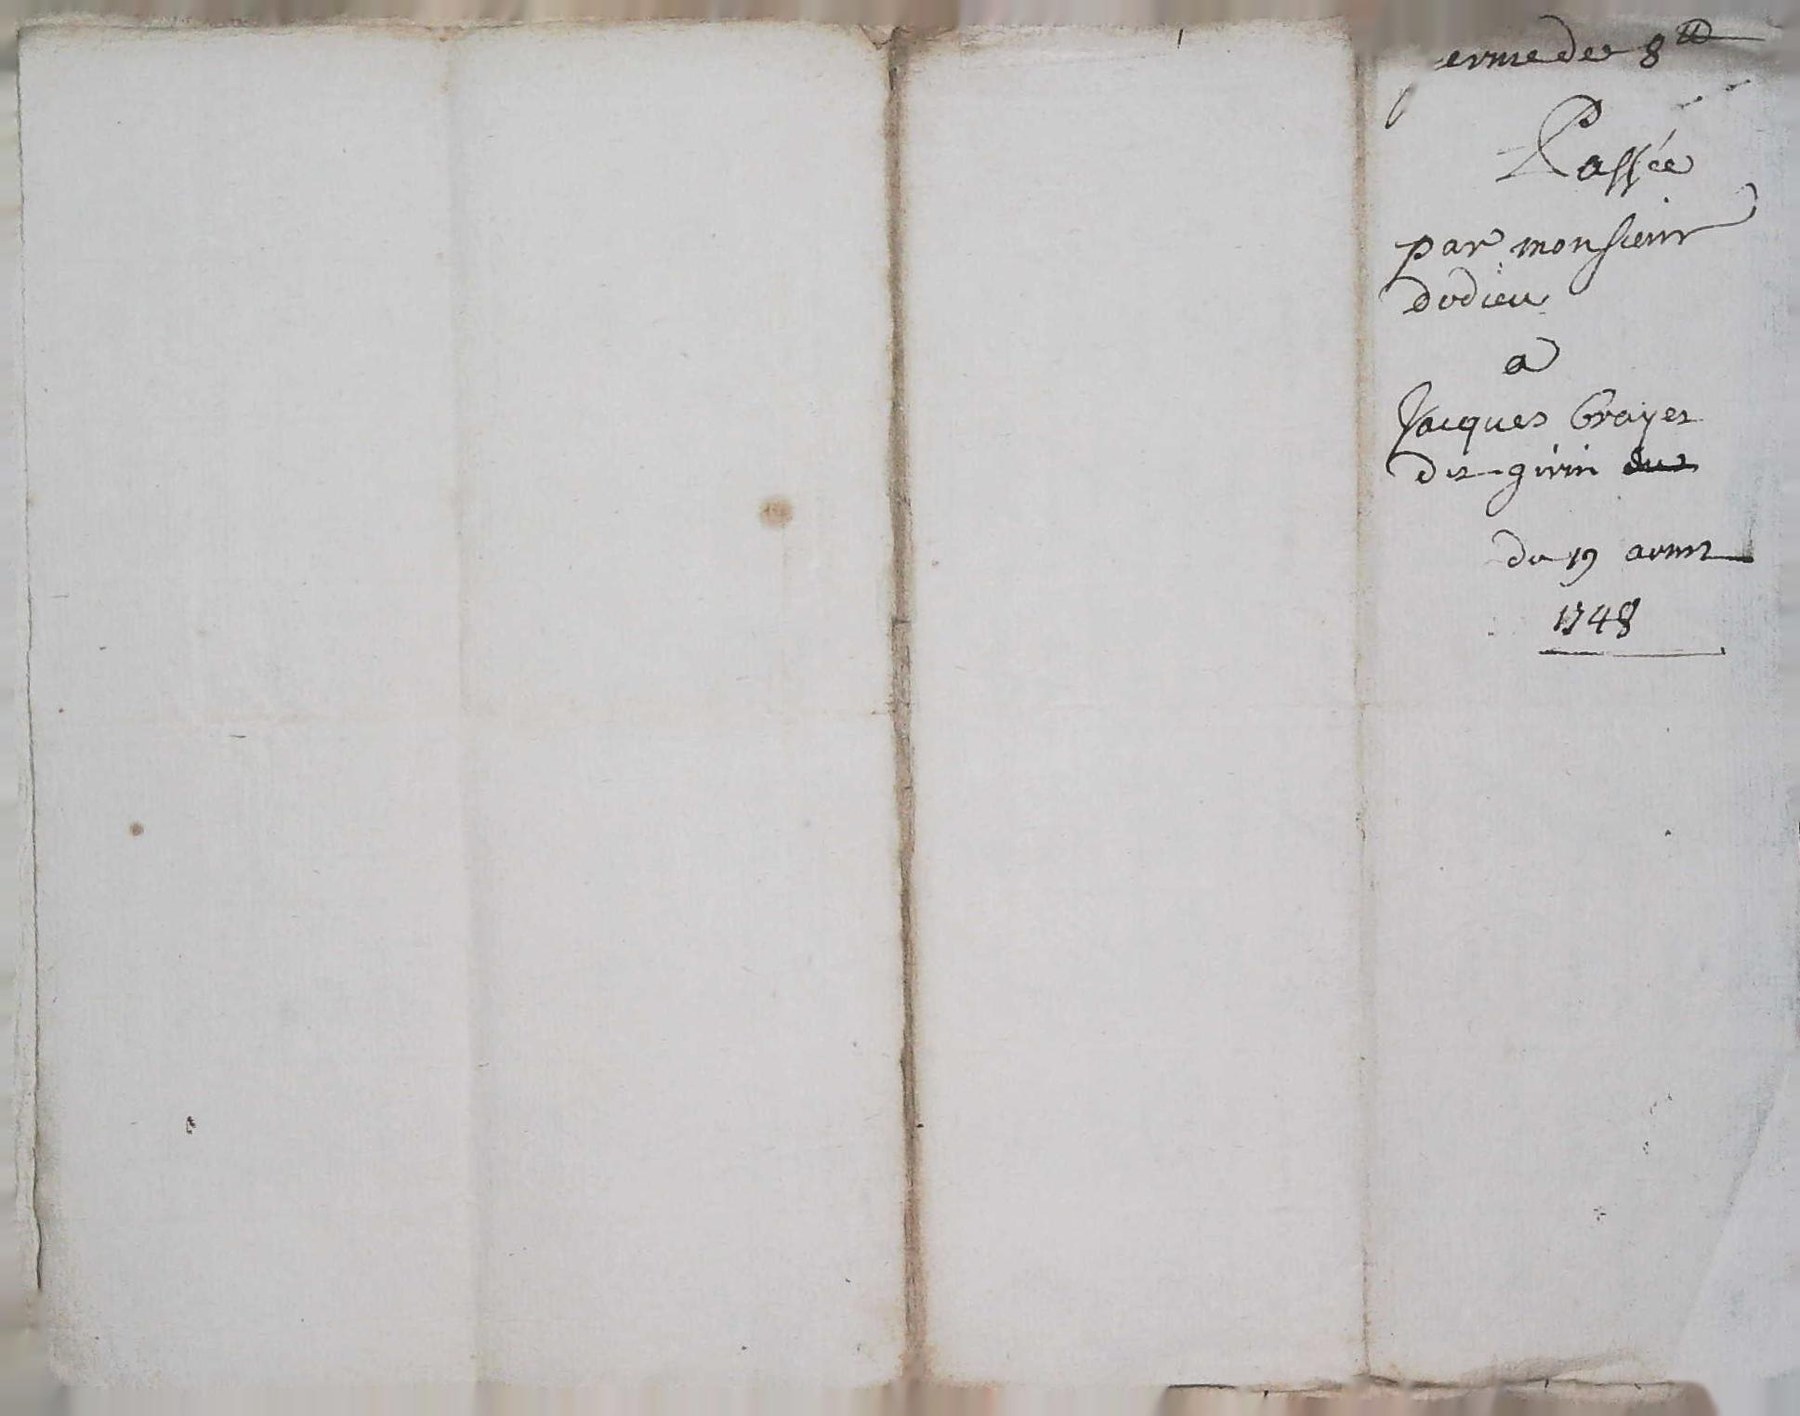 ferme de 8ᵗᵗ
Passée
par monsieur
dodieu
a
Jacques Grayet
dit girin
du 19 avril
1748